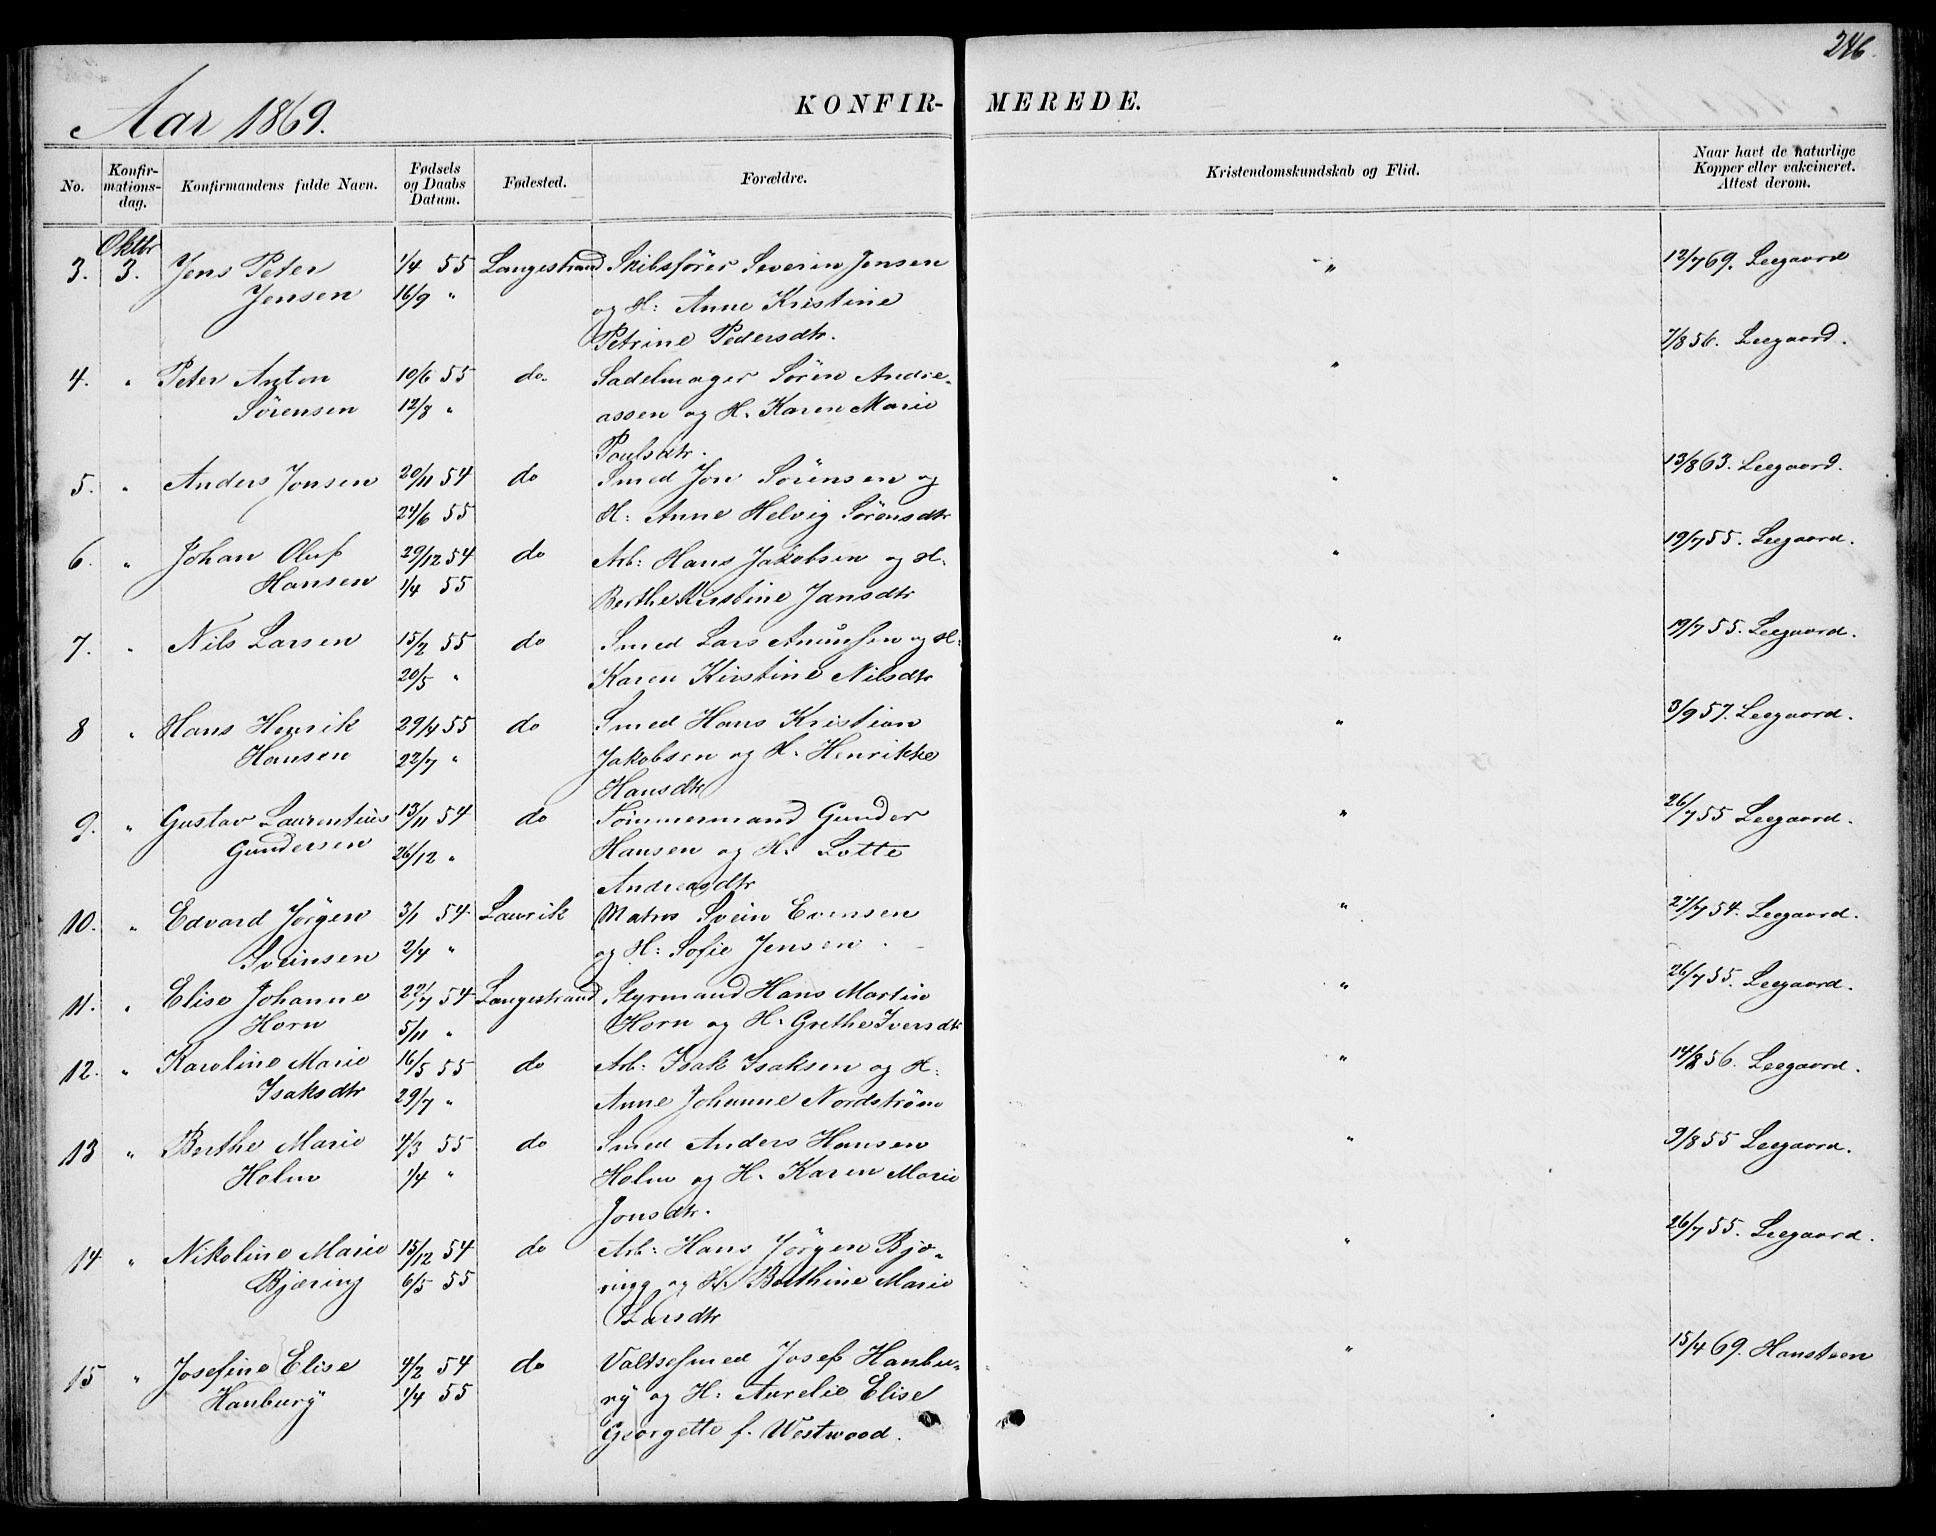 246.
Aar 1869.
KONFIR- MEREDE.
No.
Konfir-
mations-
dag.
Konfirmandens fulde Navn.
Fødsels
og Daabs
Datum.
Fødested.
Forældre.
Kristendomskundskab og Flid.
Naar havt de naturlige
Kopper eller vakcineret.
Attest derom.
Oktbr
3. 3. Jens Peter 1/4 55 Langestrand Skibsfører Severin Jensen " 12/7 69. Leegaard
Jensen 16/9 " og H: Anne Kristine
Petrine Pedersdtr.
4. " Peter Anton 10/6 55 do. Sadelmager Sören Andre- " 7/8 56. Leegaard.
Sörensen 12/8 " assen og H. Karen Marie
Paulsdtr.
5. " Anders Jonsen 20/11 54 do Smed Jon Sörensen og " 13/8 63. Leegaard.
24/6 55 H: Anne Helvig Sörensdtr
6. " Johan Oluf 29/12 54 do Arb: Hans Jakobsen og H. " 19/7 55. Leegaard.
Hansen 1/4 55 Berthe Kirstine Jansdtr
7. " Nils Larsen 15/2 55 do Smed Lars Amunsen og H: " 19/7 55. Leegaard.
20/5 " Karen Kirstine Nilsdtr
8 " Hans Henrik 29/4 55 do Smed Hans Kristian " 3/9 57. Leegaard.
Hansen 22/7 " Jakobsen og H. Henrikke
Hansdtr
9. " Gustav Laurentius 13/11 54 do Tömmermand Gunder " 26/7 55 Leegaard.
Gundersen 26/12 " Hansen og H. Lotte
Andreasdtr
10. " Edvard Jörgen 3/1 54. Laurvik Matros Svein Evensen " 27/7 54. Leegaard.
Sveinsen 2/4 " og H: Sofie Jensen.
11. " Elise Johanne 22/7 54 Langestrand Styrmand Hans Martin " 26/7 55. Leegaard.
Horn 5/11 " Horn og H. Grethe Iversdtr
12. " Karoline Marie 16/5 55 do Arb: Isak Isaksen og H: " 14/8 56. Leegaard.
Isaksdtr 29/7 " Anne Johanne Nordström
13 " Berthe Marie 4/3 55 do Smed Anders Hansen " 9/8 55 Leegaard.
Holm 1/4 " Holm og H. Karen Marie
Jonsdtr.
14 " Nikoline Marie 15/12 54 do Arb: Hans Jörgen Bjæ- " 26/7 55. Leegaard.
Bjæring 6/5 55 ring og H. Berthine Marie
Larsdtr
15 " Josefine Elise 4/2 54 do Valtsesmed Josef Hanbu- " 15/4 69. Hansteen
Hanbury 1/4 55 ry og H: Aurelie Elise
Georgette f. Westwood.